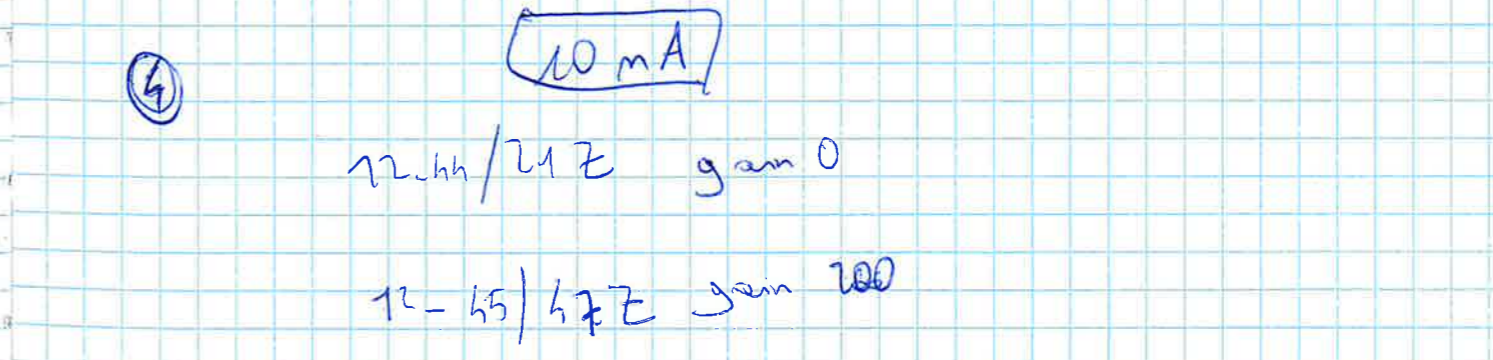 10 mA
4
12-44/21Z gain 0
12-45/47Z gain 200